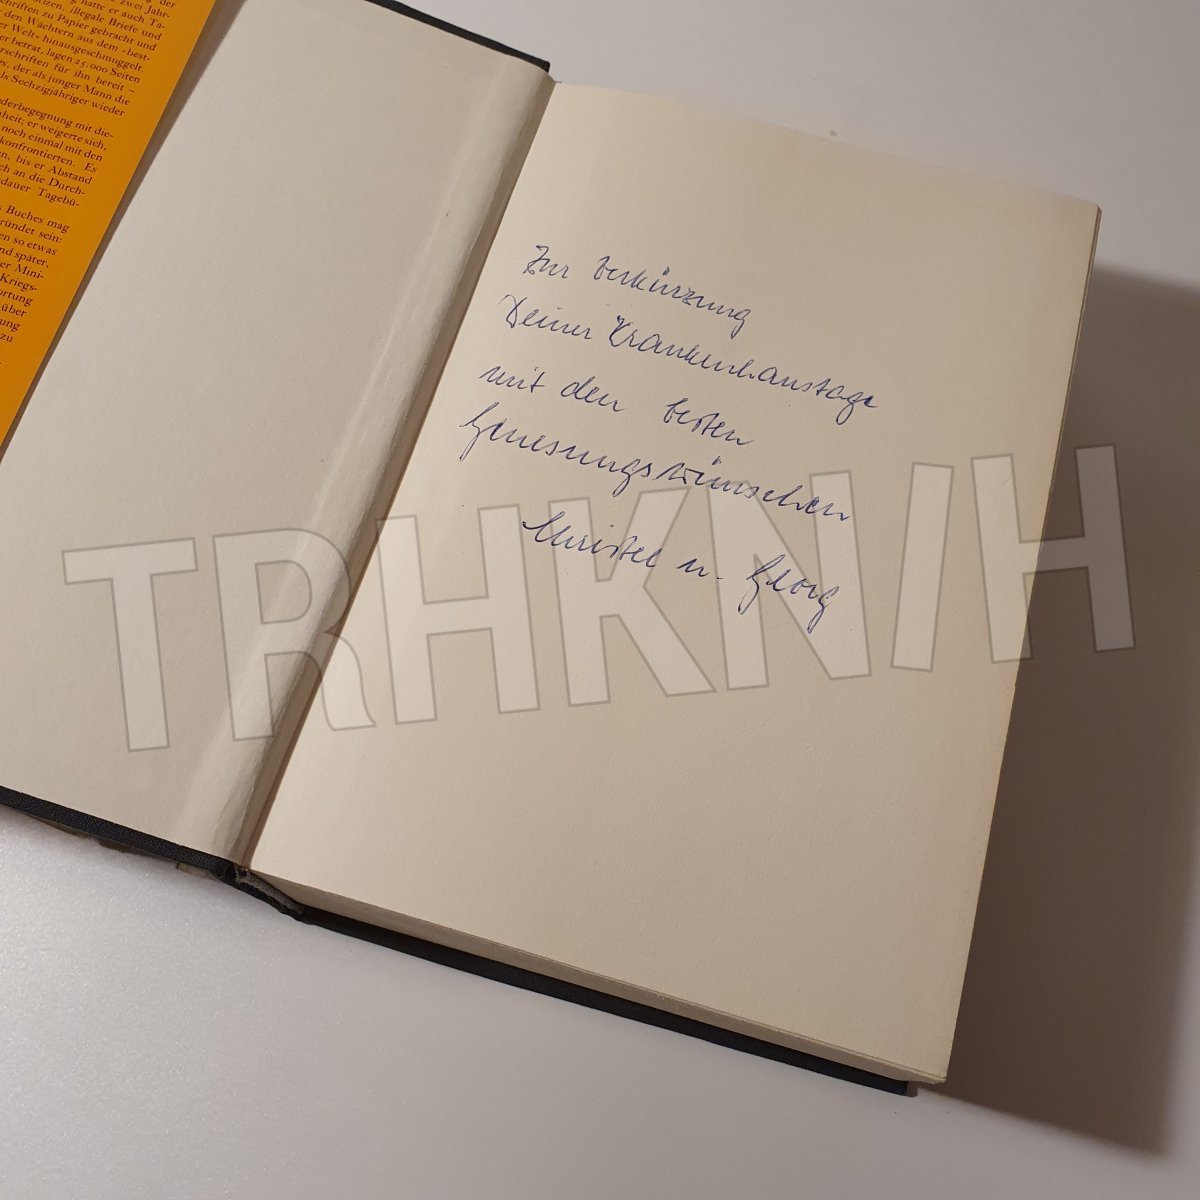 der
zwei Jahr-
hatte er auch Ta-
notizen, illegale Briefe und
schriften zu Papier gebracht und
den Wächtern aus dem »best-
Welt« hinausgeschmuggelt.
er betrat, lagen 25.000 Seiten
schriften für ihn bereit –
rs, der als junger Mann die
als Sechzigjähriger wieder
ederbegegnung mit die-
nheit; er weigerte sich,
noch einmal mit den
konfrontierten. Es
en, bis er Abstand
ch an die Durch-
dauer Tagebü-
s Buches mag
ründet sein:
en so etwas
nd später,
er Mini-
Kriegs-
ortung
über
ung
zu
Zur Verkürzung
Deiner Krankenhaustage
mit den besten
Genesungswünschen
Christel u. Georg
TRHKNIH